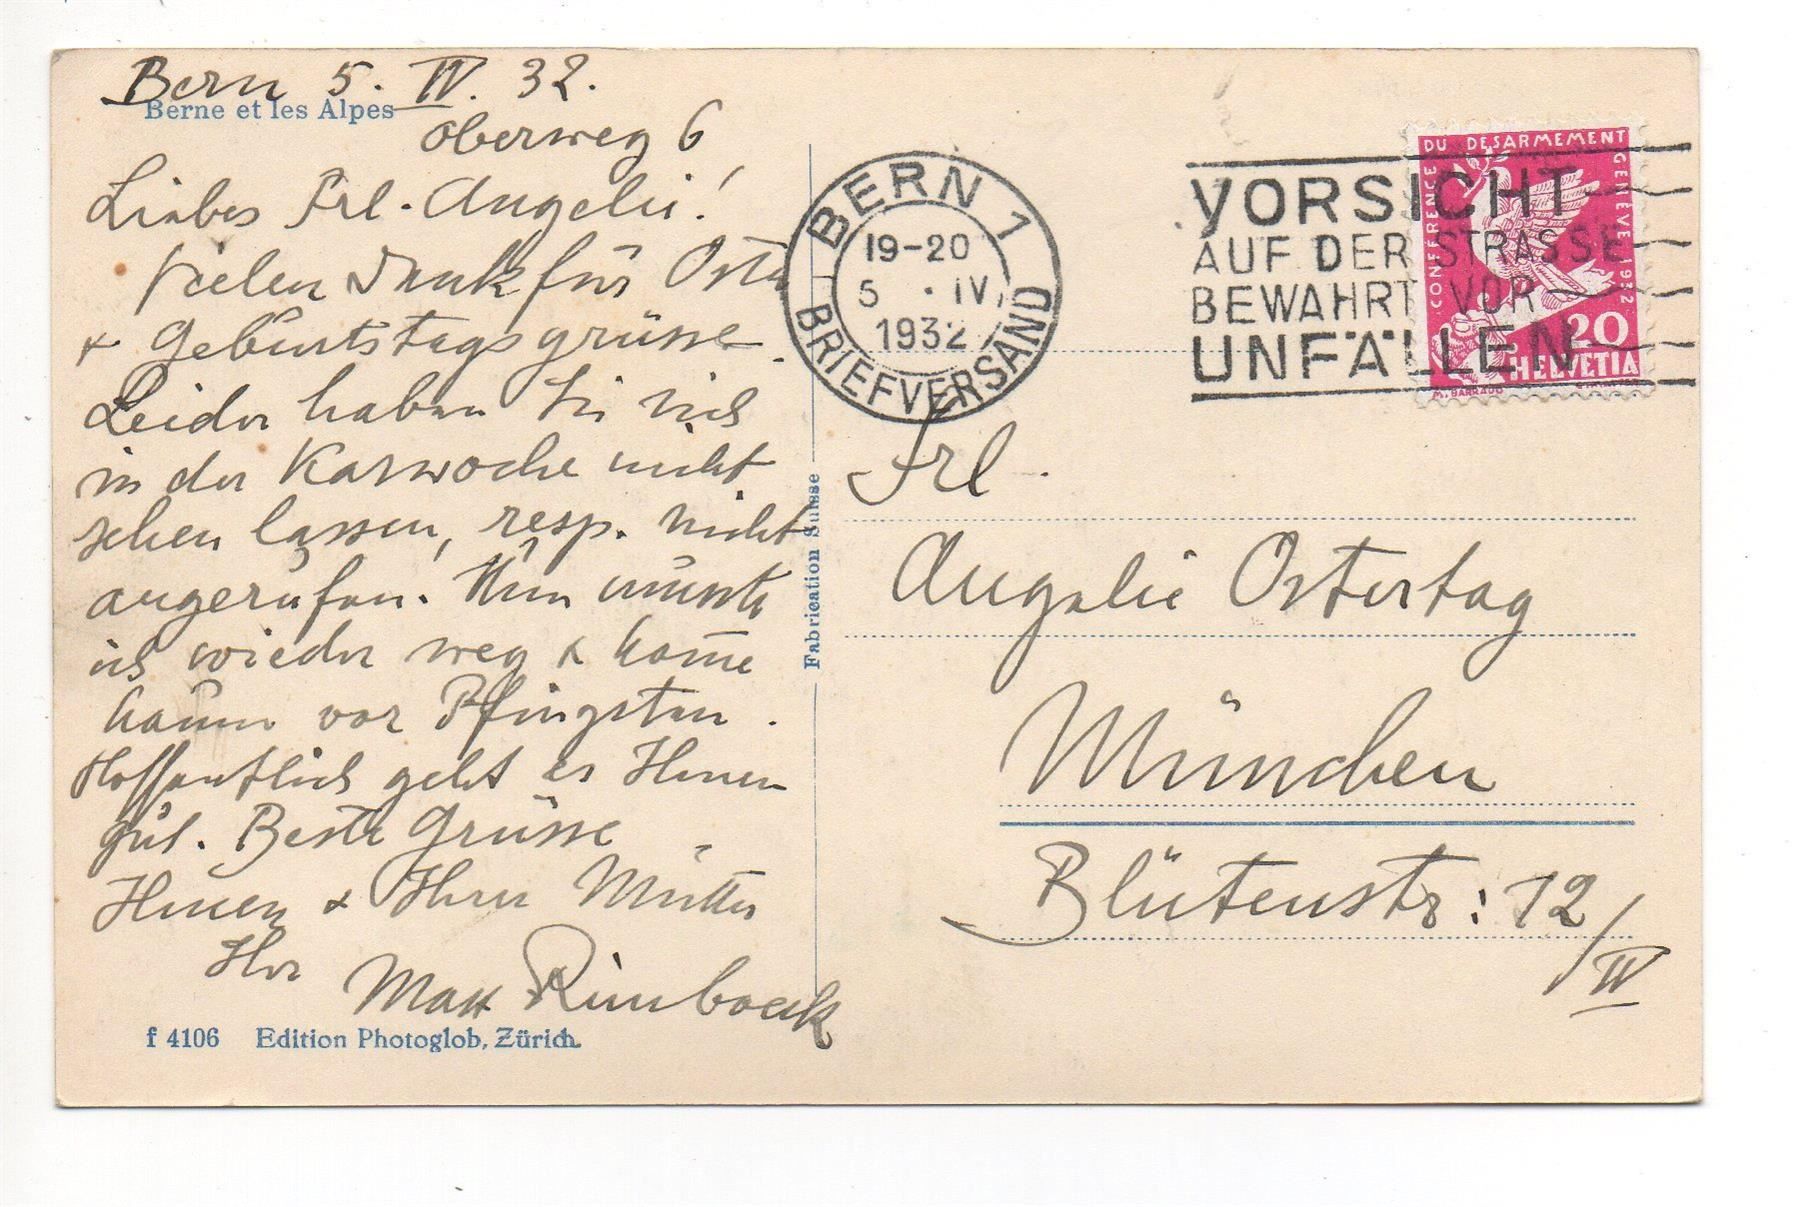 Bern 5. IV. 32.
Berne et les Alpes
Oberweg 6
Liebes Frl. Angelie!
Vielen Dank für Oster
& Geburtstagsgrüsse.
Leider haben Sie sich
in der Karwoche nicht
sehen lassen, resp. nicht
angerufen. Nun musste
ich wieder weg & kom̄e
kaum vor Pfingsten.
Hoffentlich geht es Ihnen
gut. Beste Grüsse
Ihnen & Ihrer Mutter
Ihr
Max Rimboeck
f 4106 Edition Photoglob, Zürich.
Fabrication Suisse
BERN 1
19-20
5. IV.
1932
BRIEFVERSAND
VORSICHT
AUF DER STRASSE
BEWAHRT VOR
UNFÄLLEN
CONFÉRENCE DU DESARMEMENT GENÈVE 1932
20
HELVETIA
M. BARRAUD
Frl.
Angelie Ostertag
München
Blütenstr: 12/IV